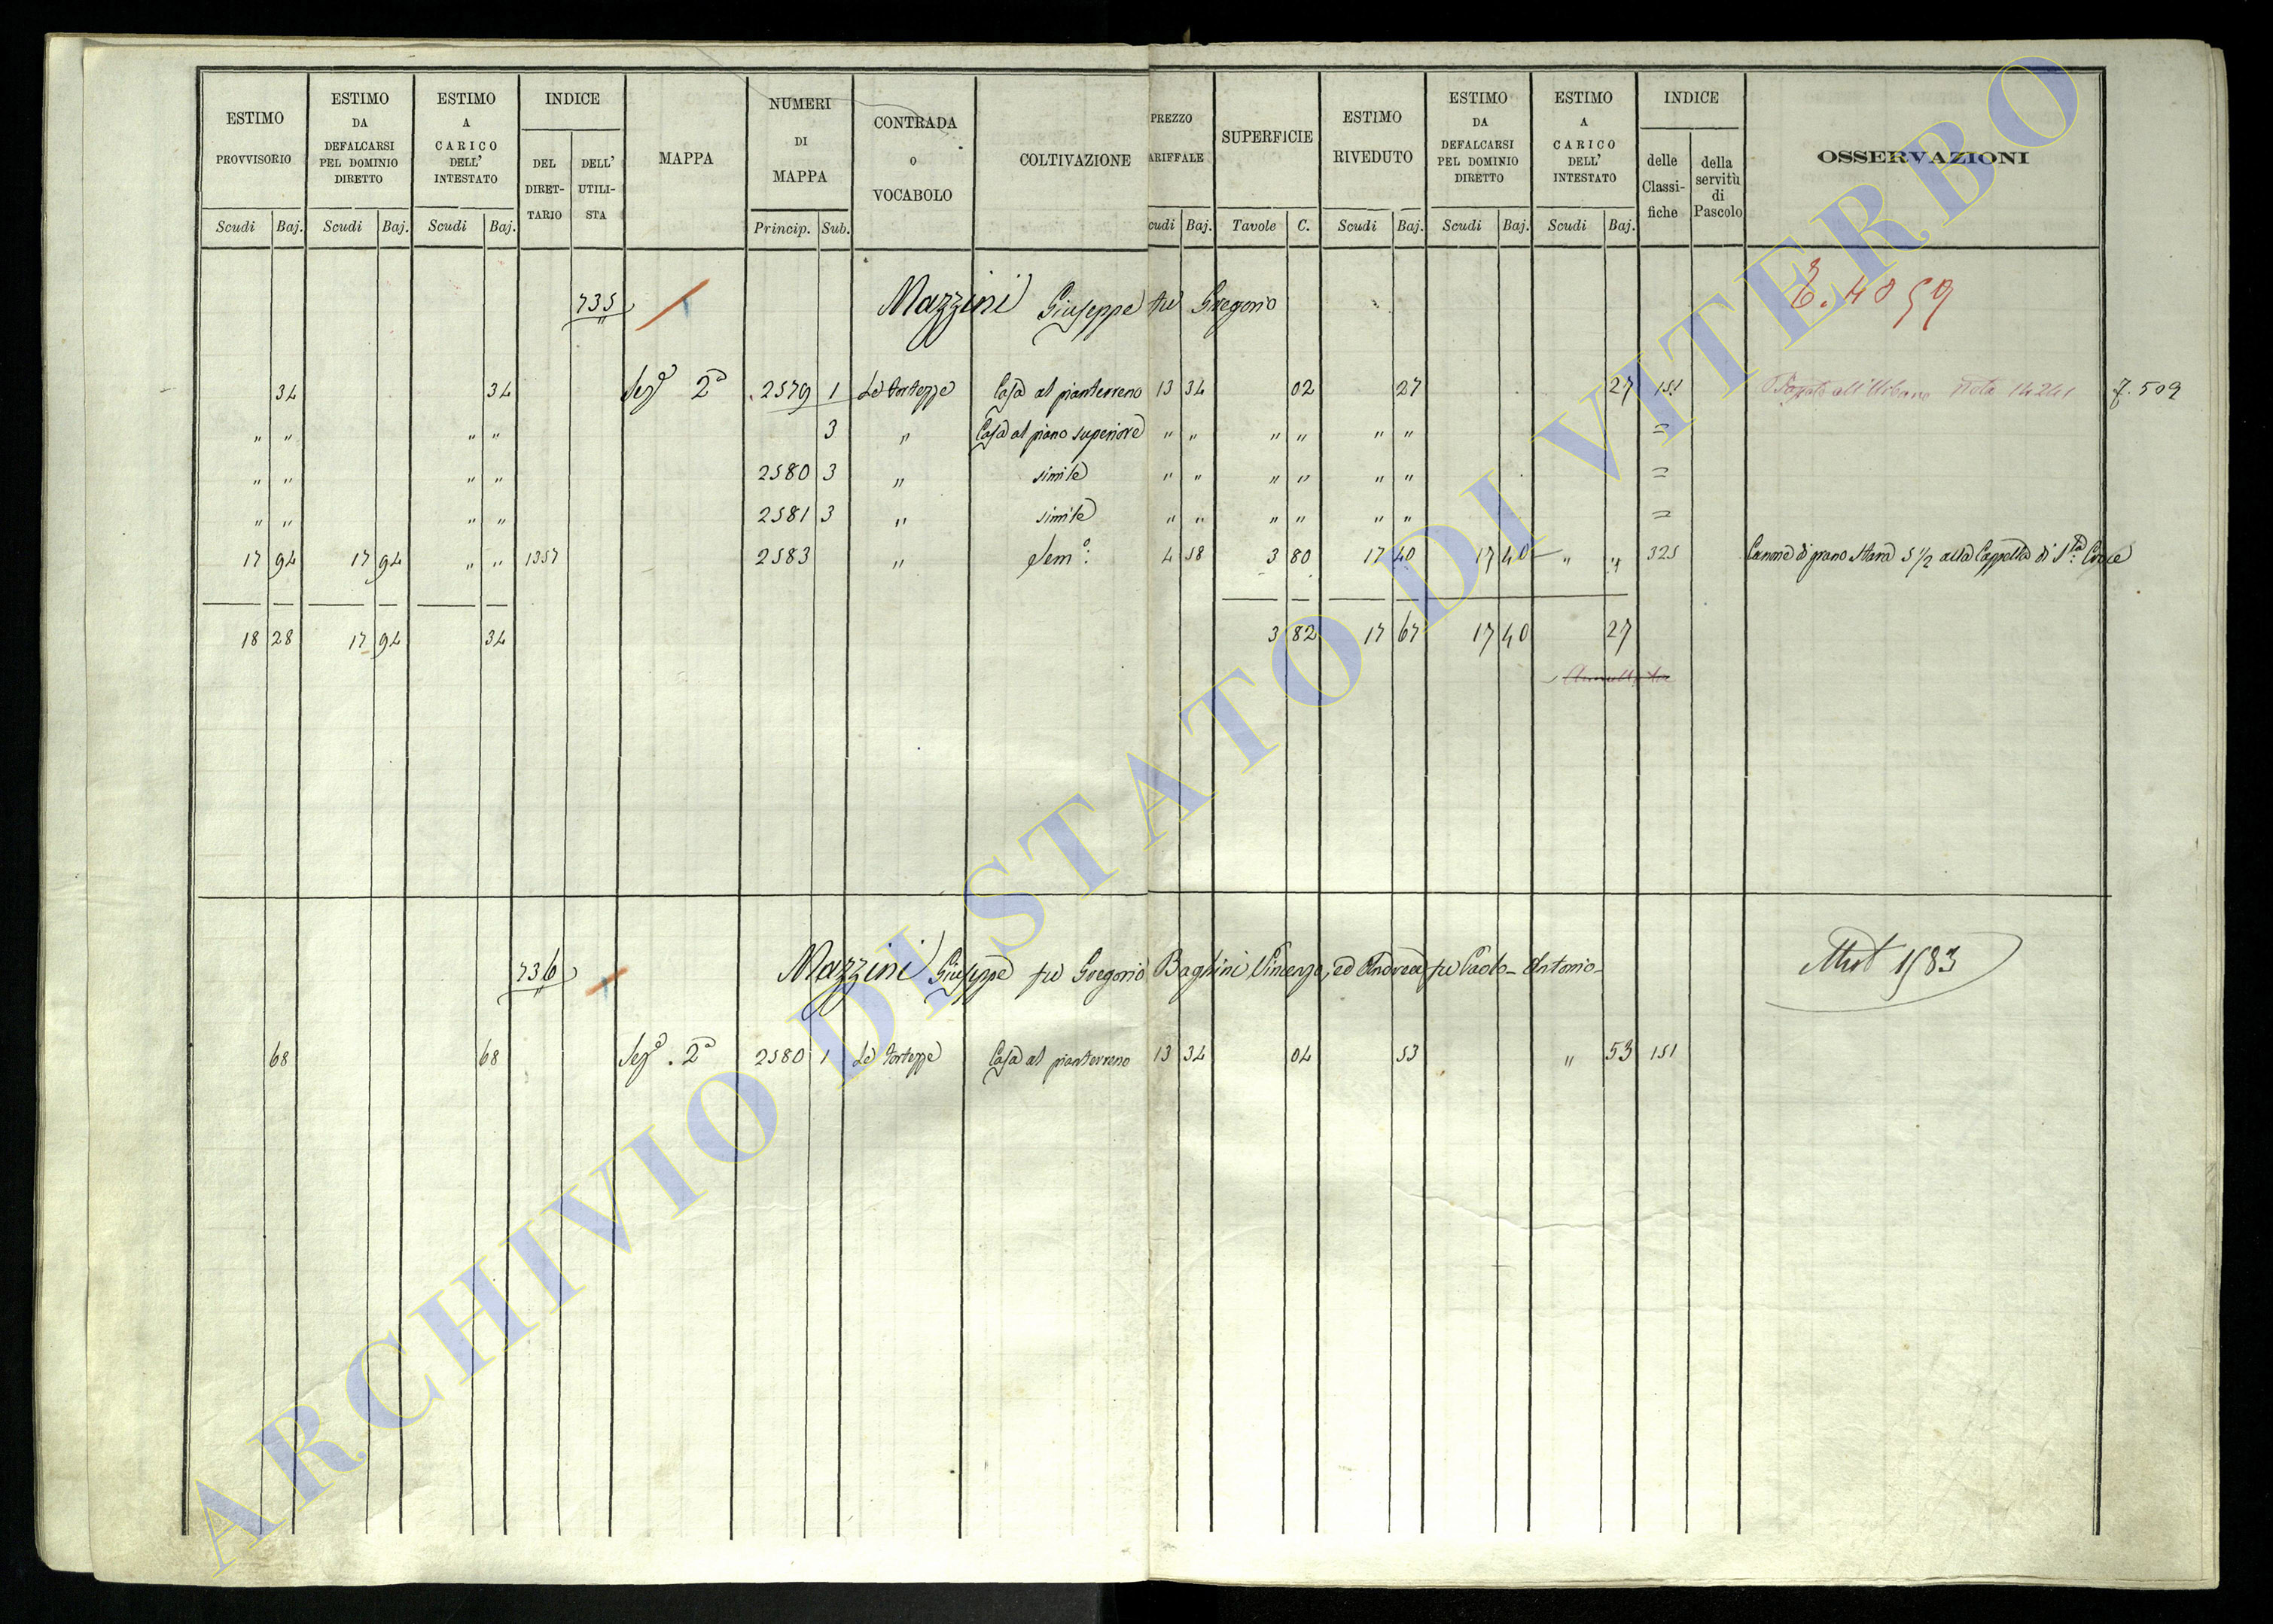 ESTIMO PROVVISORIO
ESTIMO DA DEFALCARSI PEL DOMINIO DIRETTO
ESTIMO A CARICO DELL' INTESTATO
INDICE
DEL DIRET- TARIO
DELL' UTILI- STA
MAPPA
NUMERI DI MAPPA
CONTRADA O VOCABOLO
COLTIVAZIONE
PREZZO ARIFFALE
SUPERFICIE
ESTIMO RIVEDUTO
ESTIMO DA DEFALCARSI PEL DOMINIO DIRETTO
ESTIMO A CARICO DELL' INTESTATO
INDICE
delle Classi- fiche
della servitù di Pascolo
OSSERVAZIONI
Scudi Baj. Scudi Baj. Scudi Baj. Princip. Sub. cudi Baj. Tavole C. Scudi Baj. Scudi Baj. Scudi Baj.
735 Mazzini Giuseppe fu Gregorio 4059
34 34 Sez.e 2a 2579 1 Casa al pianterreno 13 34 02 27 27 151 Nota 14241 7.509
" " " " 3 " Casa al piano superiore " " " " " " =
" " " " 2580 3 " simile " " " " " " =
" " " " 2581 3 " simile " " " " " " =
17 94 17 94 " " 1357 2583 " Sem.o 4 58 3 80 17 40 17 40 " " 325 Canone di grano Stara 5 1/2 alla Cappella di S.ta Croce
18 28 17 94 34 3 82 17 67 17 40 27
736 Mazzini Giuseppe fu Gregorio Baghini Vincenzo, ed Andrea fu Paolo-Antonio- 1583
68 68 Sez.e 2a 2580 1 Casa al pianterreno 13 34 04 53 " 53 151
ARCHIVIO DI STATO DI VITERBO